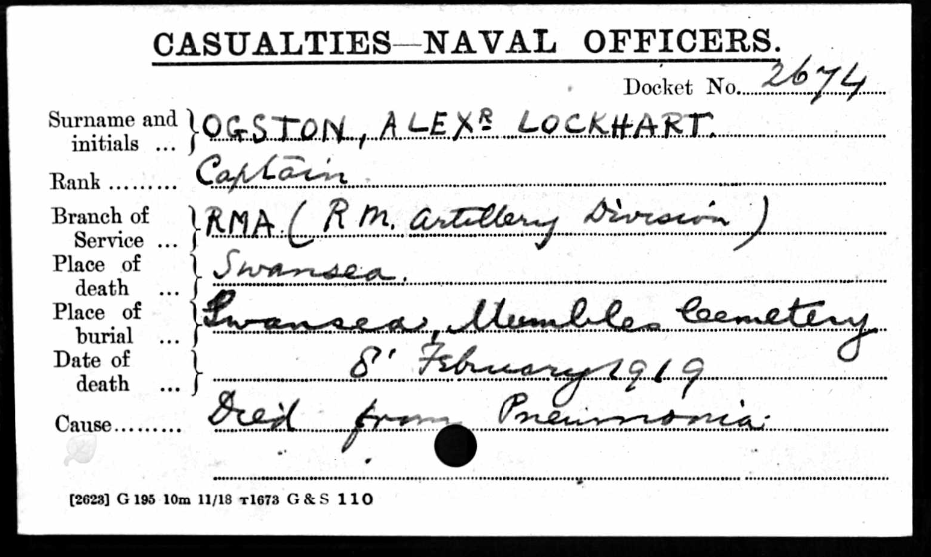 CASUALTIES—NAVAL OFFICERS.
Docket No. 2674
Surname and initials ... } OGSTON, ALEXR LOCKHART.
Rank ......... Captain
Branch of Service ... } RMA (R M. Artillery Division)
Place of death ... } Swansea.
Place of burial ... } Swansea, Mumbles Cemetery
Date of death ... } 8' February 1919
Cause......... Died from Pneumonia.
[2623] G 195 10m 11/18 T1673 G & S 110